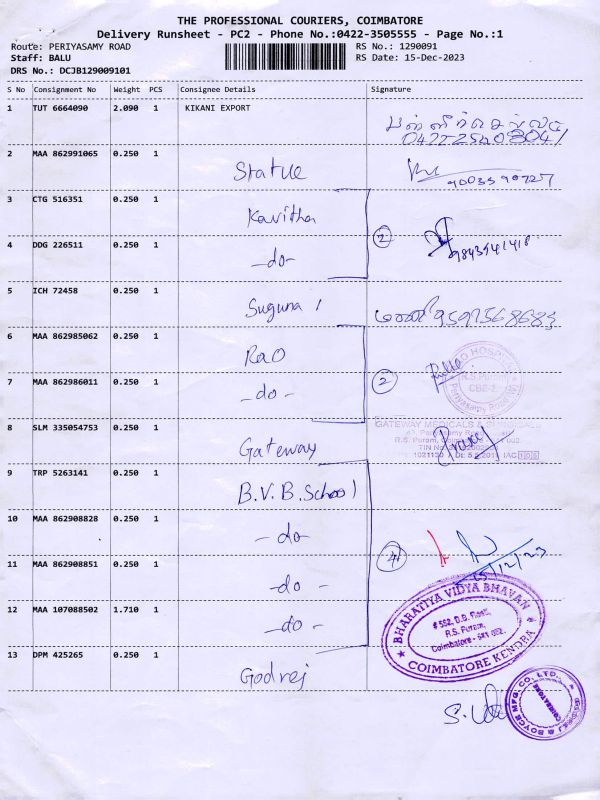 THE PROFESSIONAL COURIERS, COIMBATORE
Delivery Runsheet - PC2 - Phone No.:0422-3505555 - Page No.:1
Route: PERIYASAMY ROAD
RS No.: 1290091
Staff: BALU
RS Date: 15-Dec-2023
DRS No.: DCJB129009101
S No Consignment No Weight PCS Consignee Details Signature
1 TUT 6664090 2.090 1 KIKANI EXPORT
2 MAA 862991065 0.250 1 Statue
9003590727
3 CTG 516351 0.250 1 Kavitha
2
9843541418
4 DDG 226511 0.250 1 -do-
5 ICH 72458 0.250 1 Suguna 1
6 MAA 862985062 0.250 1 Rao
2
RAO HOSPITAL
R.S. Puram
CBE-2
Periyasamy Road
7 MAA 862986011 0.250 1 -do-
8 SLM 335054753 0.250 1 Gateway
GATEWAY MEDICALS &
R.S. Puram,
9 TRP 5263141 0.250 1 B.V.B.School
10 MAA 862908828 0.250 1 -do-
4
15/12/23
11 MAA 862908851 0.250 1 -do-
12 MAA 107088502 1.710 1 -do-
BHARATIYA VIDYA BHAVAN
# 352, D.B. Road,
R.S. Puram,
Coimbatore - 641 002.
COIMBATORE KENDRA
13 DPM 425265 0.250 1 Godrej
& BOYCE MFG. CO. LTD.
COIMBATORE